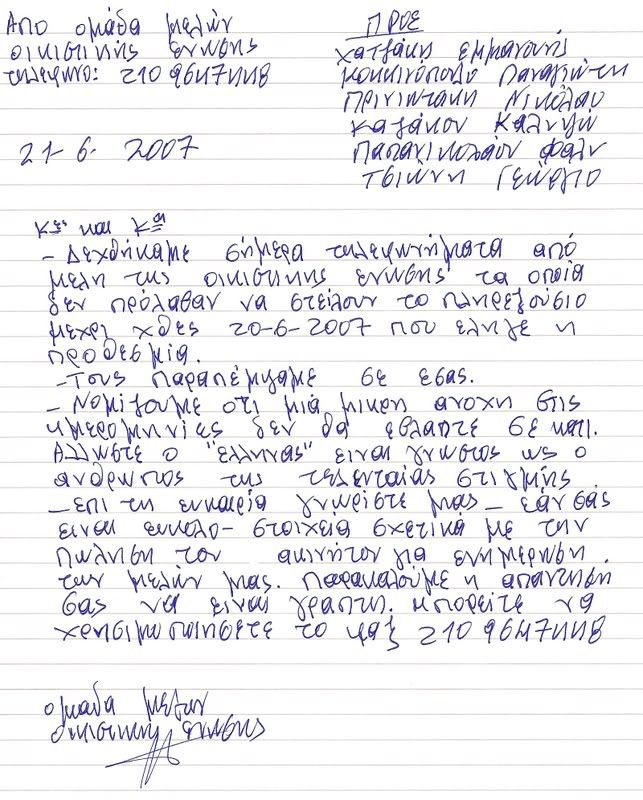 Από ομάδα μελών
οικιστικής ενωσης
τηλεφωνο: 210 9647448
ΠΡΟΣ
Χατζάκη Εμμανουήλ
Παναγιώτη
Πρινιωτάκη Νικόλαο
Καζάκου
Παπανικολάου
Τσιώνη Γεώργιο
21-6-2007
Κες και Κοι
- Δεχθήκαμε σήμερα τηλεφωνήματα από
μελη της οικιστικης ενωσης τα οποία
δεν πρόλαβαν να στείλουν το πληρεξούσιο
μεχρι χθες 20-6-2007 που εληγε η
προθεσμία.
- Τους παραπέμψαμε σε εσας.
- Νομίζουμε οτι μιά μικρη ανοχη στις
ημερομηνίες δεν θα εβλαπτε σε κατι.
Αλλωστε ο "Ελληνας" ειναι γνωστος ως ο
ανθρωπος της τελευταίας στιγμής
- επι τη ευκαιρία γνωρίστε μας - εάν σάς
ειναι ευκολο - στοιχεία σχετικά με την
πώληση του ακινήτου για ενημερωση
των μελών μας. Παρακαλούμε η απαντηση
σας να ειναι γραπτη. Μπορείτε να
χρησιμοποιησετε το φαξ 210 9647448
ομαδα μελων
οικιστικης ενωσης